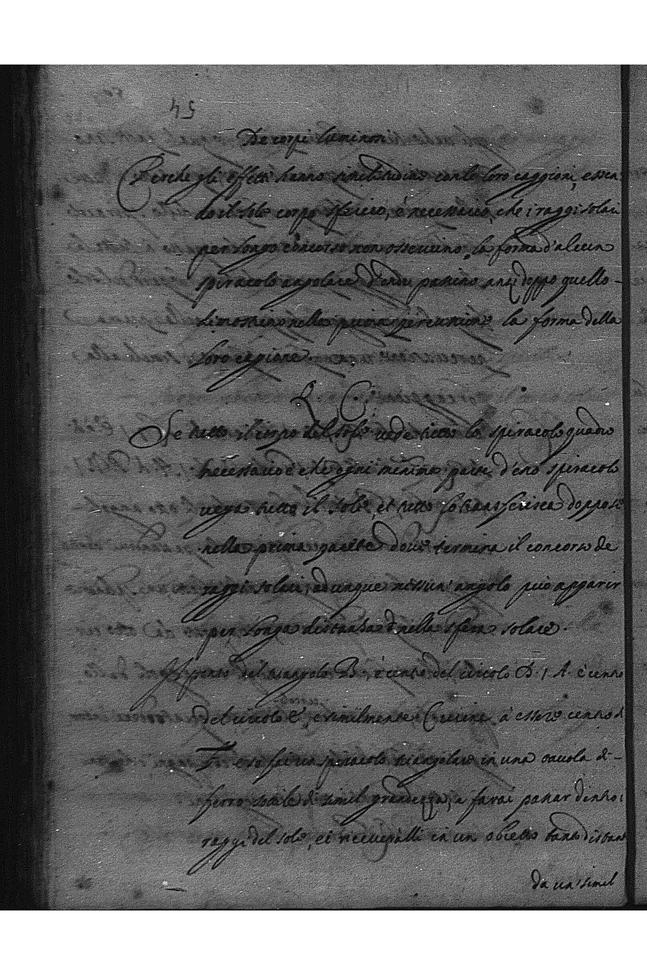 54
De corpi luminosi
Perche gli effetti hanno similitudine con le loro caggioni, essen
do il sole corpo sferico, è necessario, che i raggi solari
per longo concorso non osservino la forma d'alcun
spiracolo angolare d'onde passino anzi doppo quello
dimostrino nella prima percussione la forma della
loro cagione
Se tutto il corpo del sole vede tutto lo spiracolo quadro
necessario è che ogni minima parte d'esso spiracolo
vegga tutto il Sole et tutto lo transferisca doppo se
nella prima parete dove termina il concorso de
raggi solari, adunque nessun' angolo può apparir
per longa distanza nella spera solare.
del triangolo B, è centro del circolo B, A è centro
del circolo e similmente C viene a essere centro d
F e se fai un spiracolo triangolare in una tavola di
ferro sottile di simil grandezza, e farai passar dentro i
raggi del sole, et riceveralli in un obietto tanto distan
da un' simil